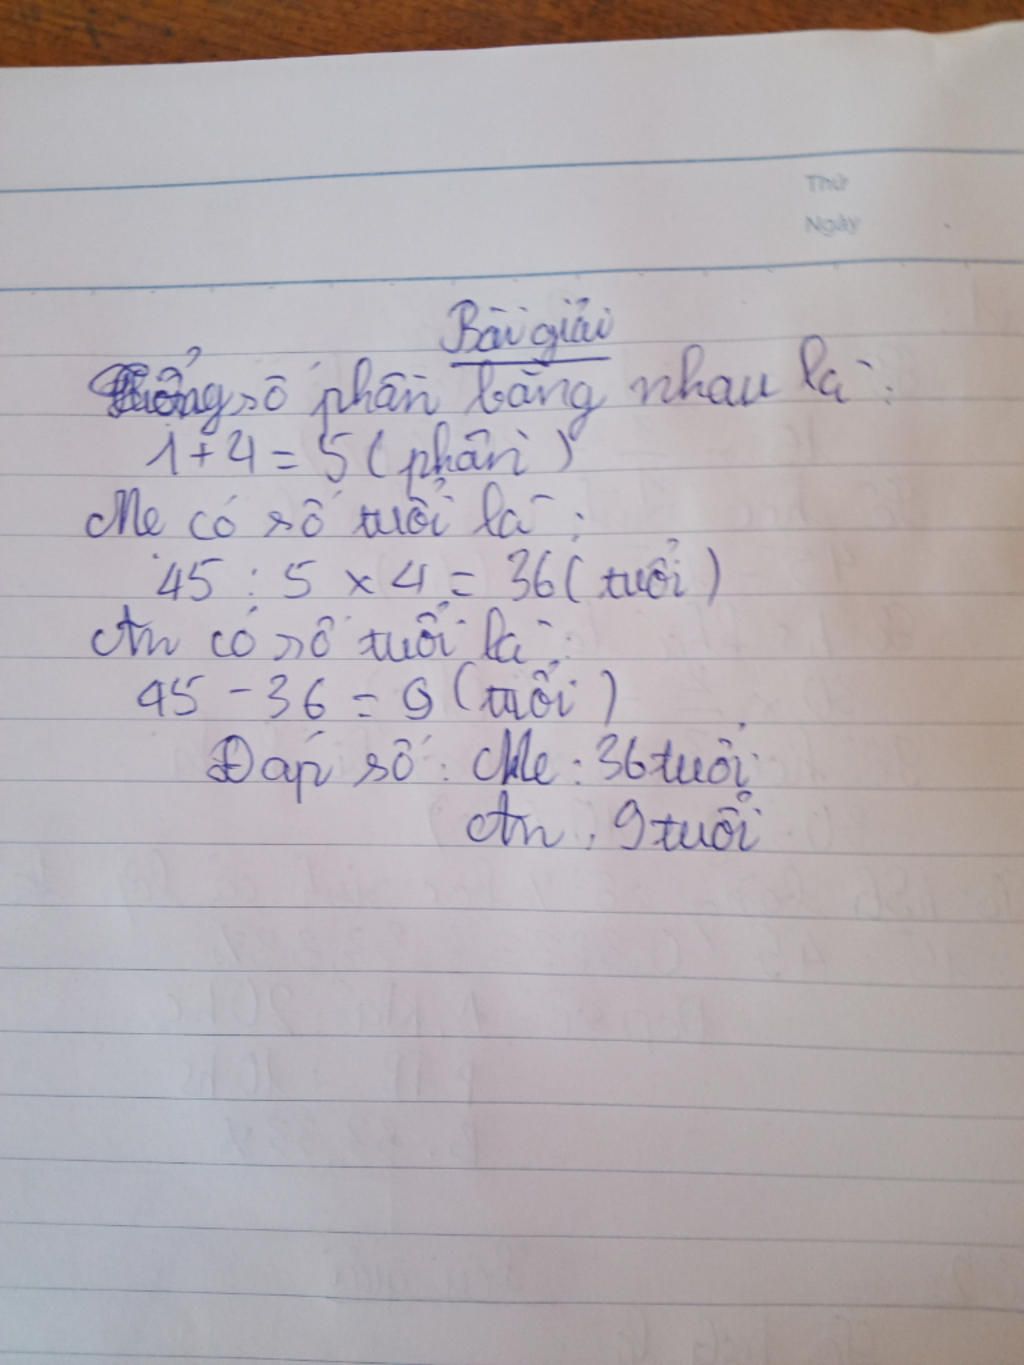 Thứ
Ngày
Bài giải
Tổng số phần bằng nhau là:
1 + 4 = 5 (phần)
Mẹ có số tuổi là:
45 : 5 x 4 = 36 (tuổi)
An có số tuổi là:
45 - 36 = 9 (tuổi)
Đáp số: Mẹ: 36 tuổi
An: 9 tuổi